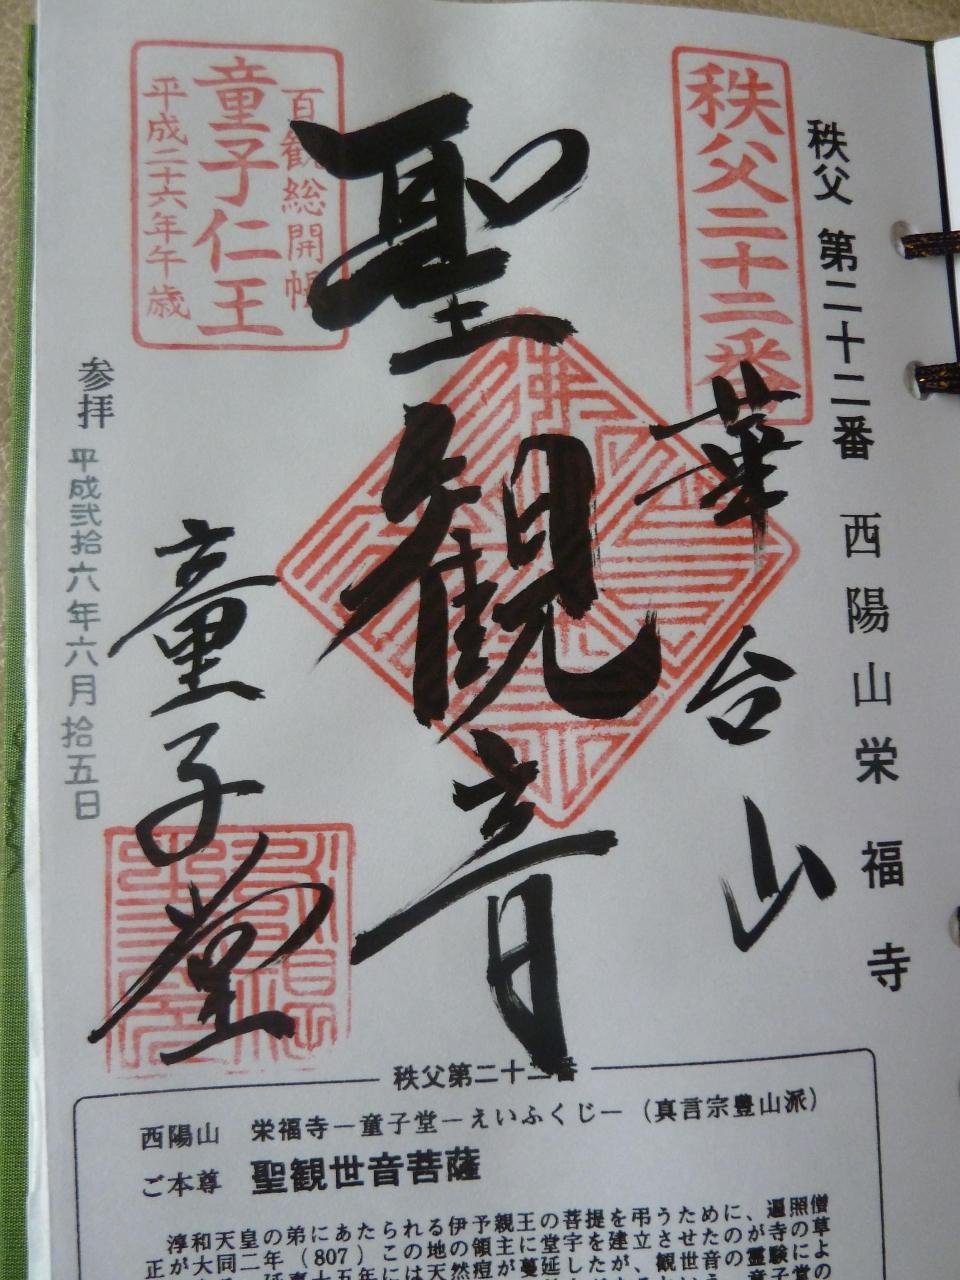 秩父 第二十二番 西陽山栄福寺
秩父二十二番
華台山
聖観音
百観総開帳
童子仁王
平成二十六年午歳
童子堂
参拝 平成弐拾六年六月拾五日
秩父第二十二番
西陽山 栄福寺－童子堂－えいふくじー（真言宗豊山派）
ご本尊 聖観世音菩薩
淳和天皇の弟にあたられる伊予親王の菩提を弔うために、遍照僧